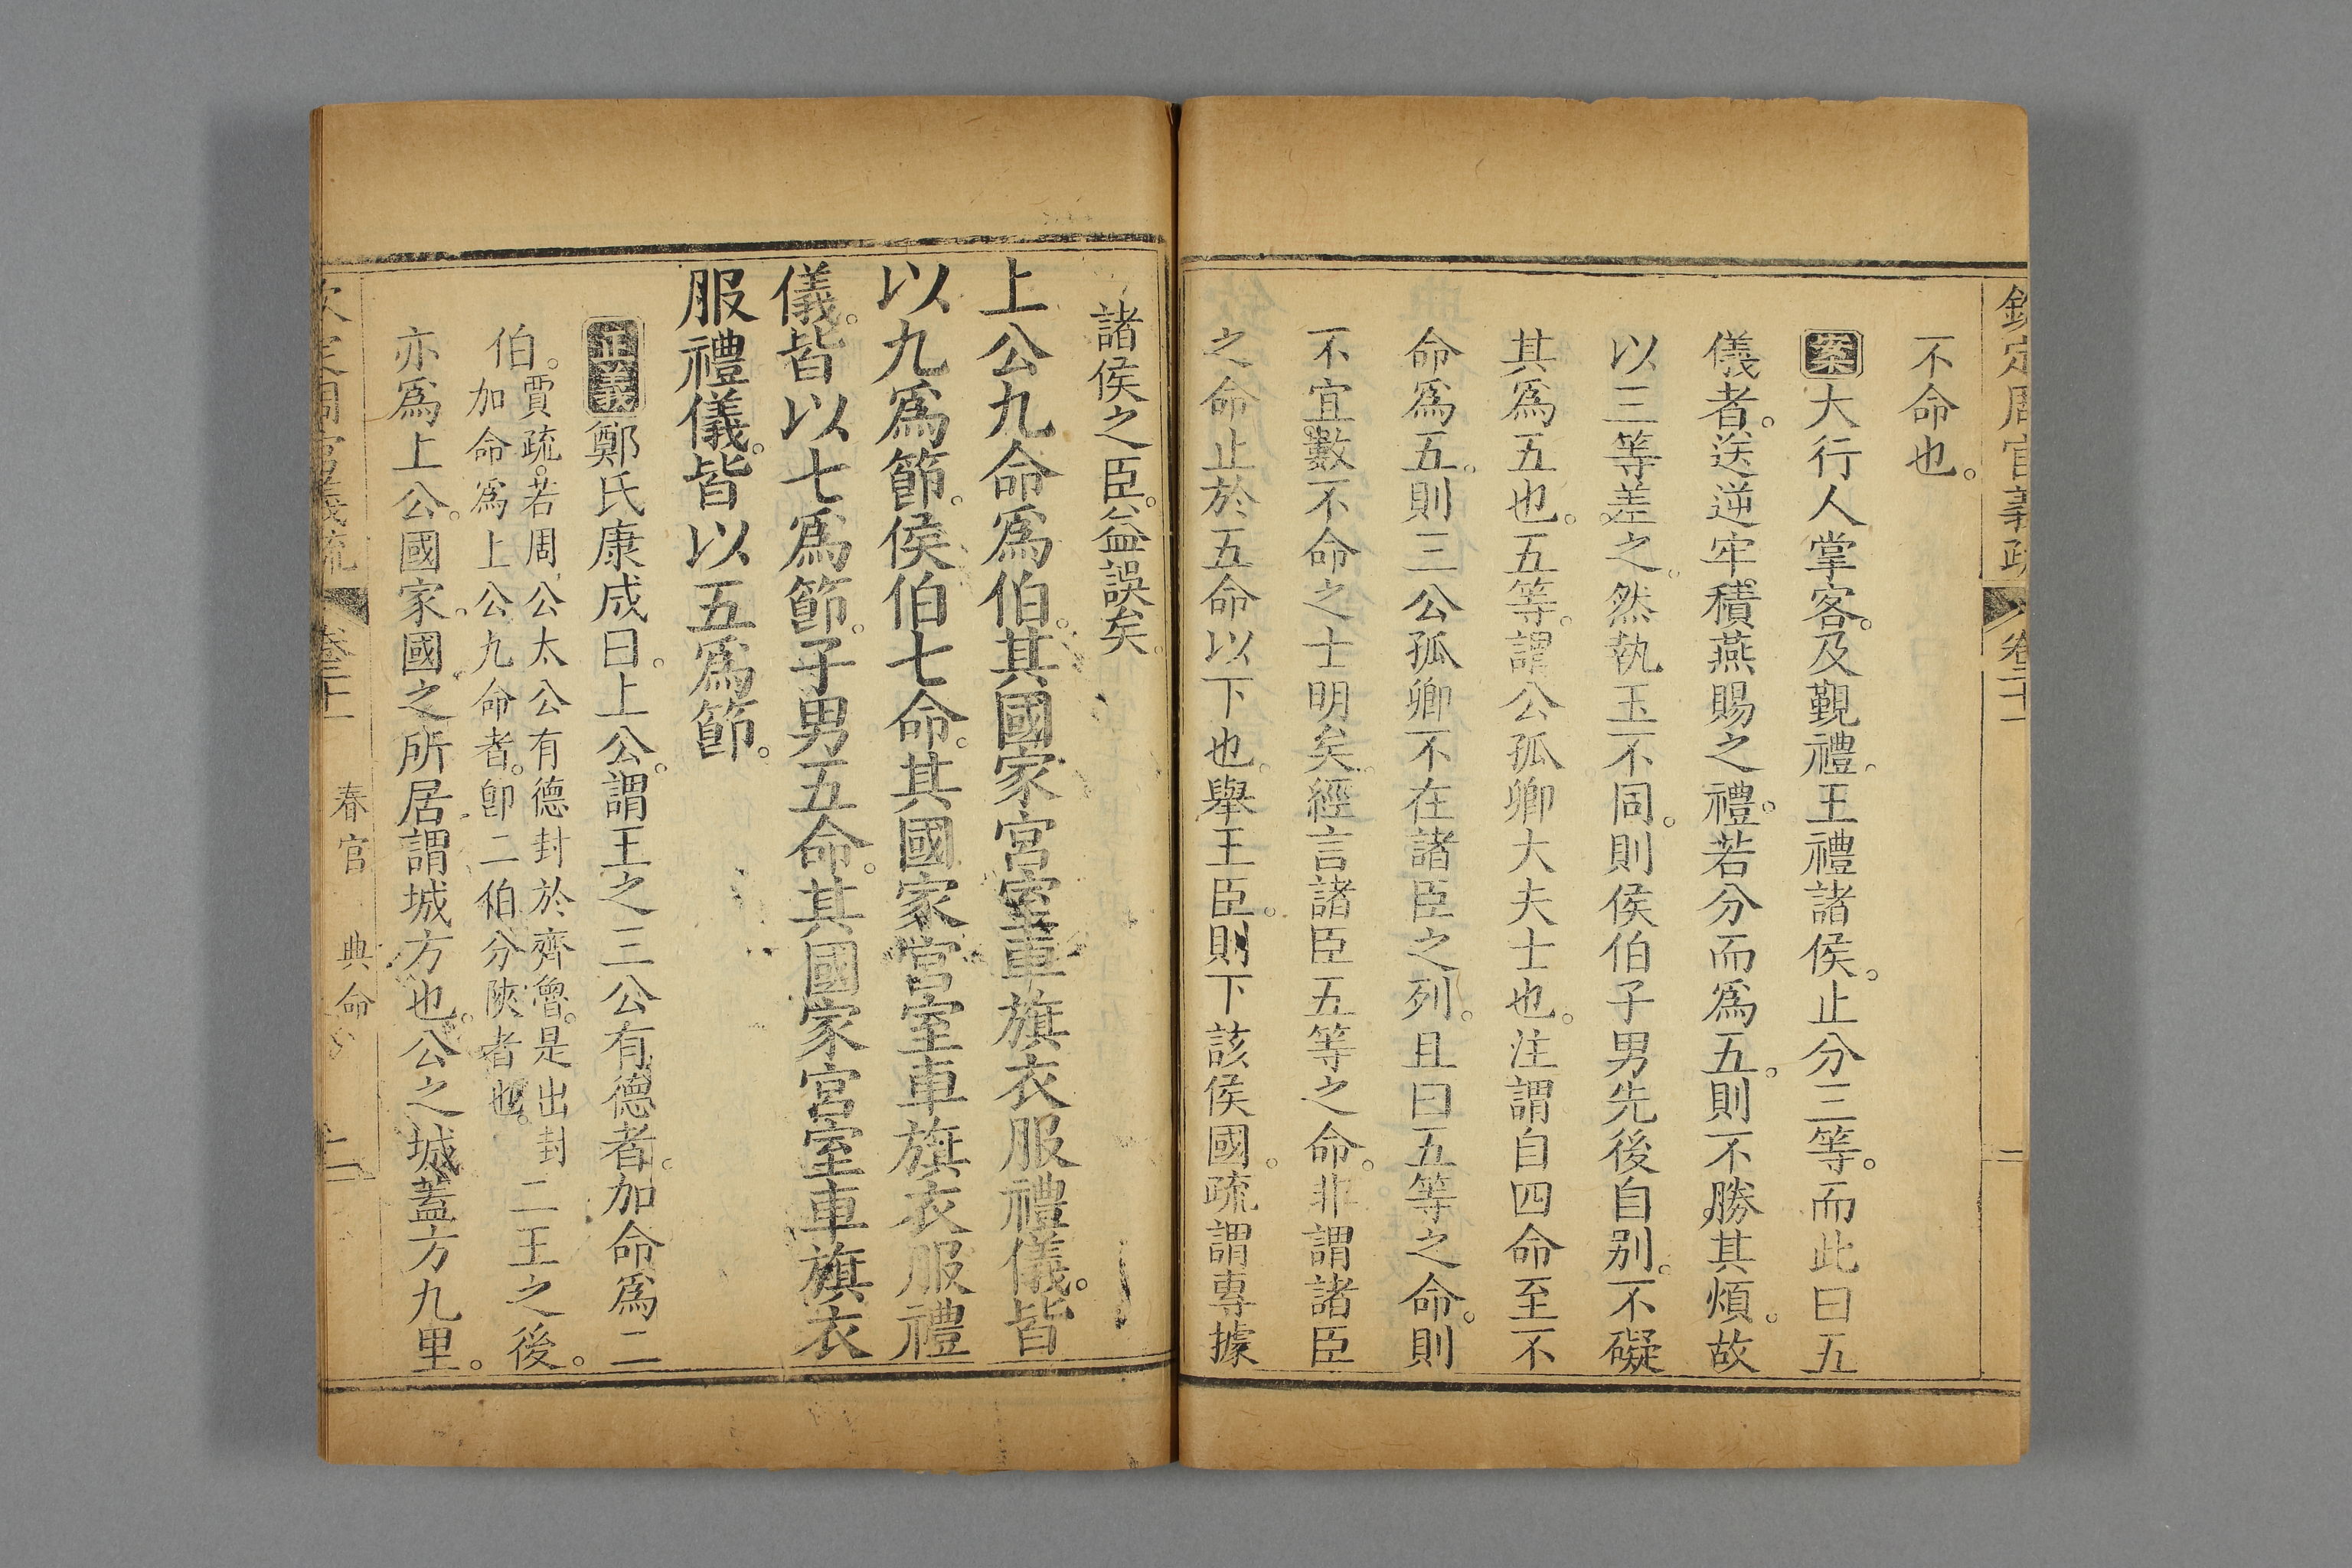 欽定周官義疏 卷二十一 二
不命也。
案大行人掌客。及覲禮。王禮諸侯。止分三等。而此曰五
儀者。送逆牢積燕賜之禮。若分而爲五。則不勝其煩。故
以三等差之。然執玉不同。則侯伯子男先後自别。不礙
其爲五也。五等。謂公孤卿大夫士也。注謂自四命至不
命爲五。則三公孤卿不在諸臣之列。且曰五等之命。則
不宜數不命之士明矣。經言諸臣五等之命。非謂諸臣
之命止於五命以下也。舉王臣。則下該侯國。疏謂專據
諸侯之臣。益誤矣。
上公九命爲伯。其國家宮室車旗衣服禮儀。皆
以九爲節。侯伯七命。其國家宮室車旗衣服禮
儀。皆以七爲節。子男五命。其國家宮室車旗衣
服禮儀。皆以五爲節。
正義鄭氏康成曰。上公。謂王之三公有德者。加命爲二
伯。賈疏。若周公太公有德封於齊魯。是出封
加命爲上公九命者。卽二伯分陝者也。二王之後。
亦爲上公。國家。國之所居。謂城方也。公之城。蓋方九里。
欽定周官義疏 卷二十一 春官 典命 二